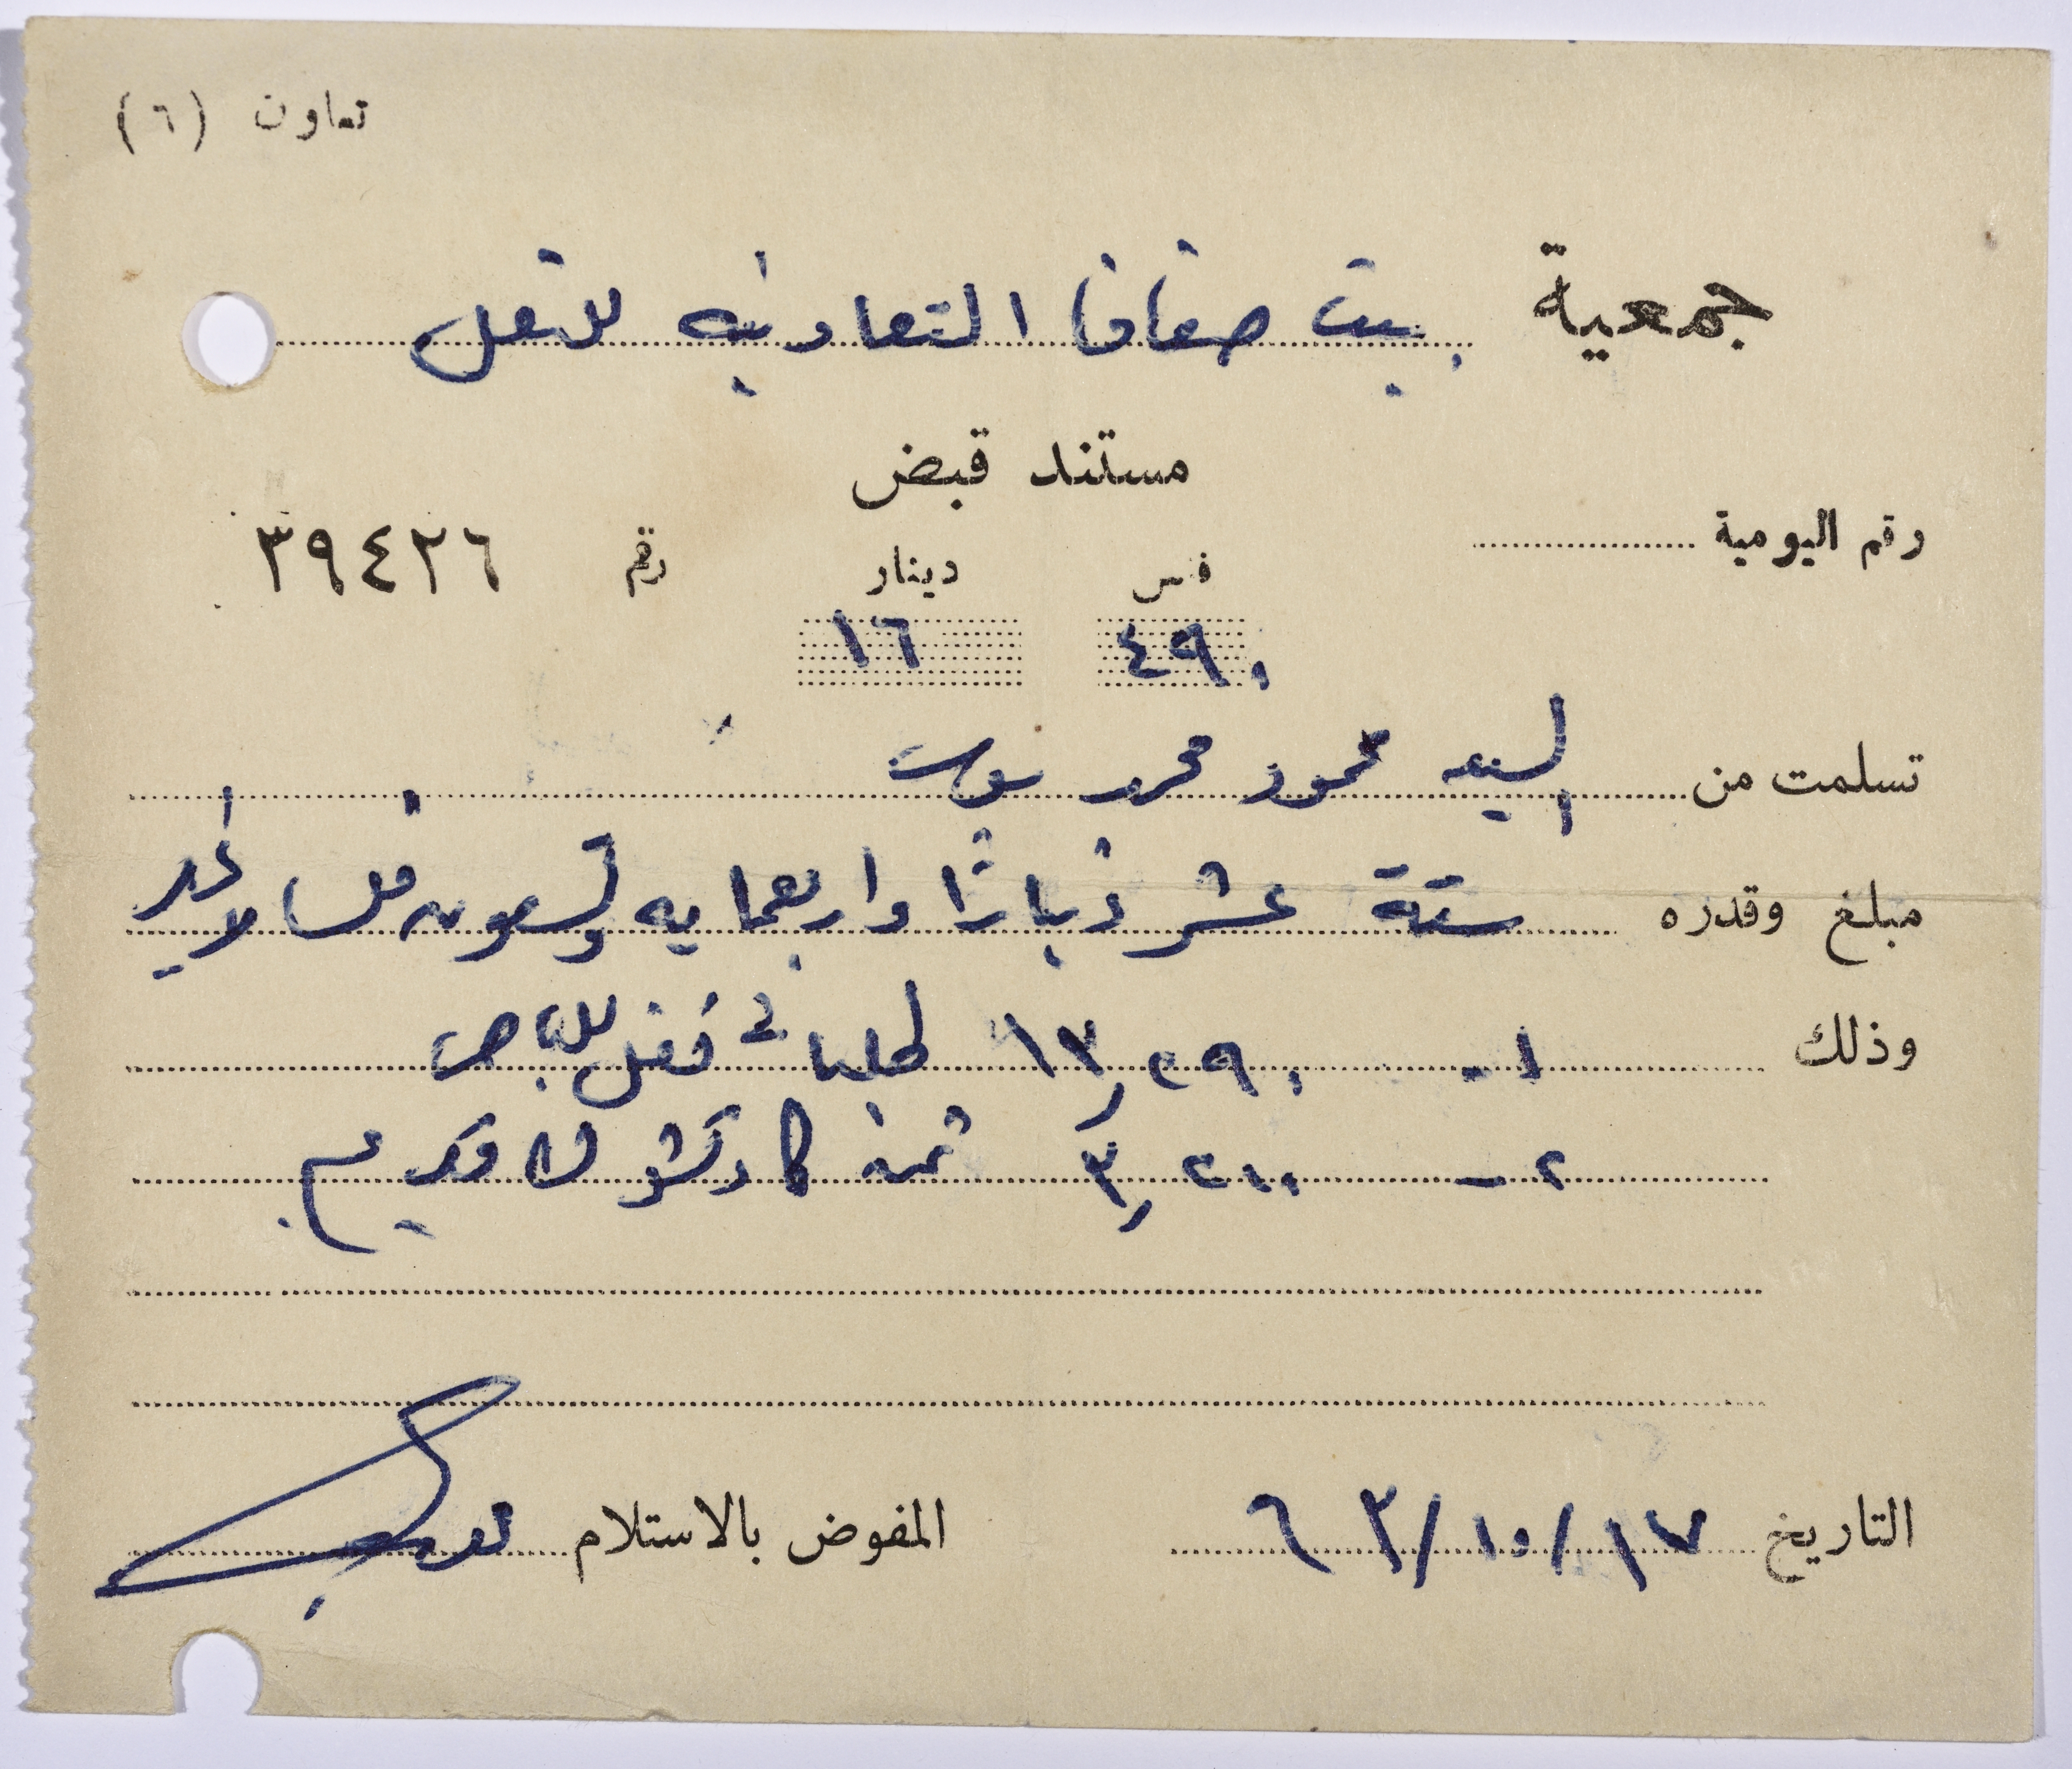 تعاون (٦)
جمعية بيت صفافا التعاونيه للنقل
مستند قبض
رقم اليومية
رقم ٣٩٤٢٦
فلس دينار
٤٩٠ ١٦
تسلمت من السيد محمود محمد
مبلغ وقدره ستة عشر ديناراً واربعمايه وتسعون فلس لا غير
وذلك ١- ١٣,٢٩٠ للباص
٢- ٣,٢٠٠ ثمن كاوتشوك قديم
التاريخ ١٧/١٠/٦٣
المفوض بالاستلام